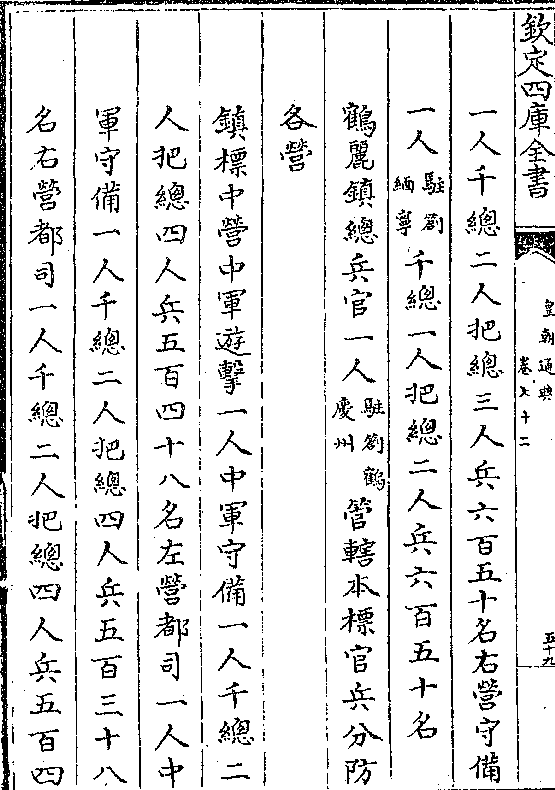 欽定四庫全書
皇朝通典
卷七十二
五十九
一人千總二人把總三人兵六百五十名右營守備
一人駐劄緬寧千總一人把總二人兵六百五十名
鶴麗鎮總兵官一人駐劄鶴慶州管轄本標官兵分防
各營
鎮標中營中軍遊擊一人中軍守備一人千總二
人把總四人兵五百四十八名左營都司一人中
軍守備一人千總二人把總四人兵五百三十八
名右營都司一人千總二人把總四人兵五百四